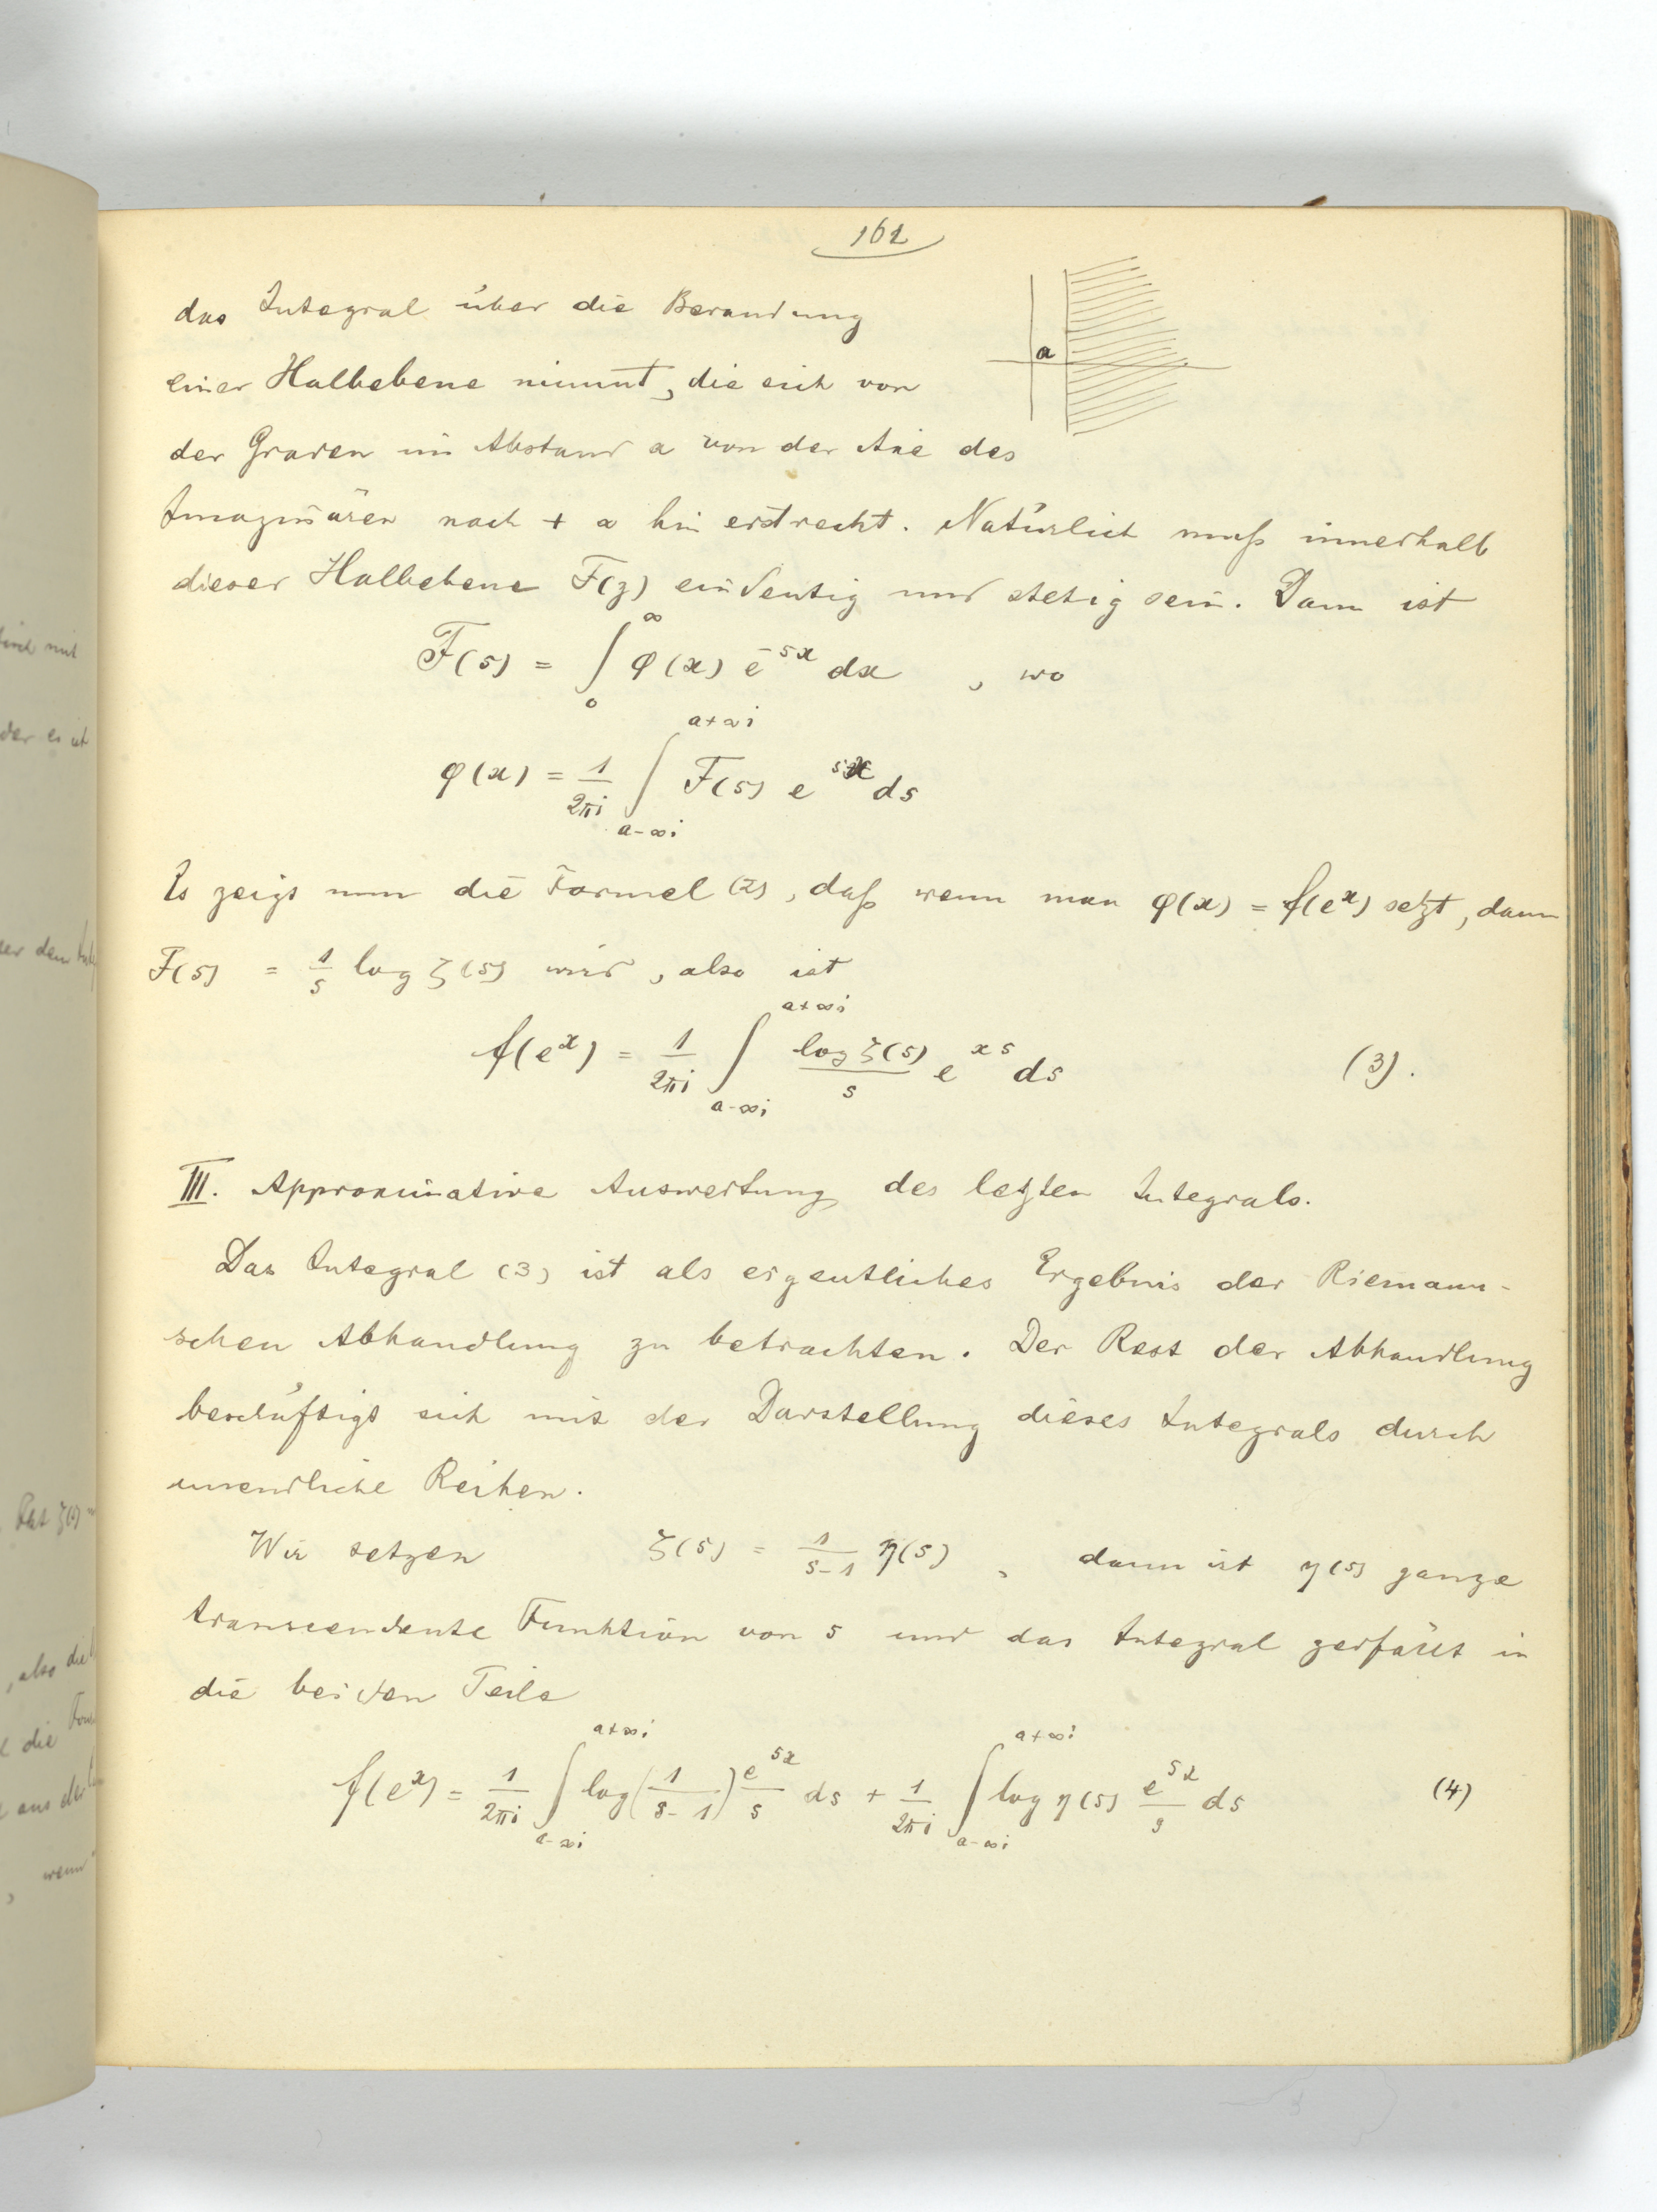 161
das Integral über die Berandung
einer Halbebene nimmt, die sich von
a
der Graden im Abstand a von der Axe des
Imaginären nach + ∞ hin erstreckt. Natürlich muß innerhalb
dieser Halbebene F(z) eindeutig und stetig sein. Dann ist
F(s) = ∫_0^∞ φ(x) e^{-sx} dx , wo
φ(x) = 1/2πi ∫_{a-∞i}^{a+∞i} F(s) e^{sx} ds
Es zeigt nun die Formel (2), daß wenn man φ(x) = f(e^x) setzt, dann
F(s) = 1/s log ζ(s) wird, also ist
f(e^x) = 1/2πi ∫_{a-∞i}^{a+∞i} log ζ(s)/s e^{xs} ds (3).
III. Approximative Auswertung des letzten Integrals.
Das Integral (3) ist als eigentliches Ergebnis der Riemann-
schen Abhandlung zu betrachten. Der Rest der Abhandlung
beschäftigt sich mit der Darstellung dieses Integrals durch
unendliche Reihen.
Wir setzen ζ(s) = 1/(s-1) η(s) , dann ist η(s) ganze
transcendente Funktion von s und das Integral zerfällt in
die beiden Teile
f(e^x) = 1/2πi ∫_{a-∞i}^{a+∞i} log(1/(s-1)) e^{sx}/s ds + 1/2πi ∫_{a-∞i}^{a+∞i} log η(s) e^{sx}/s ds (4)